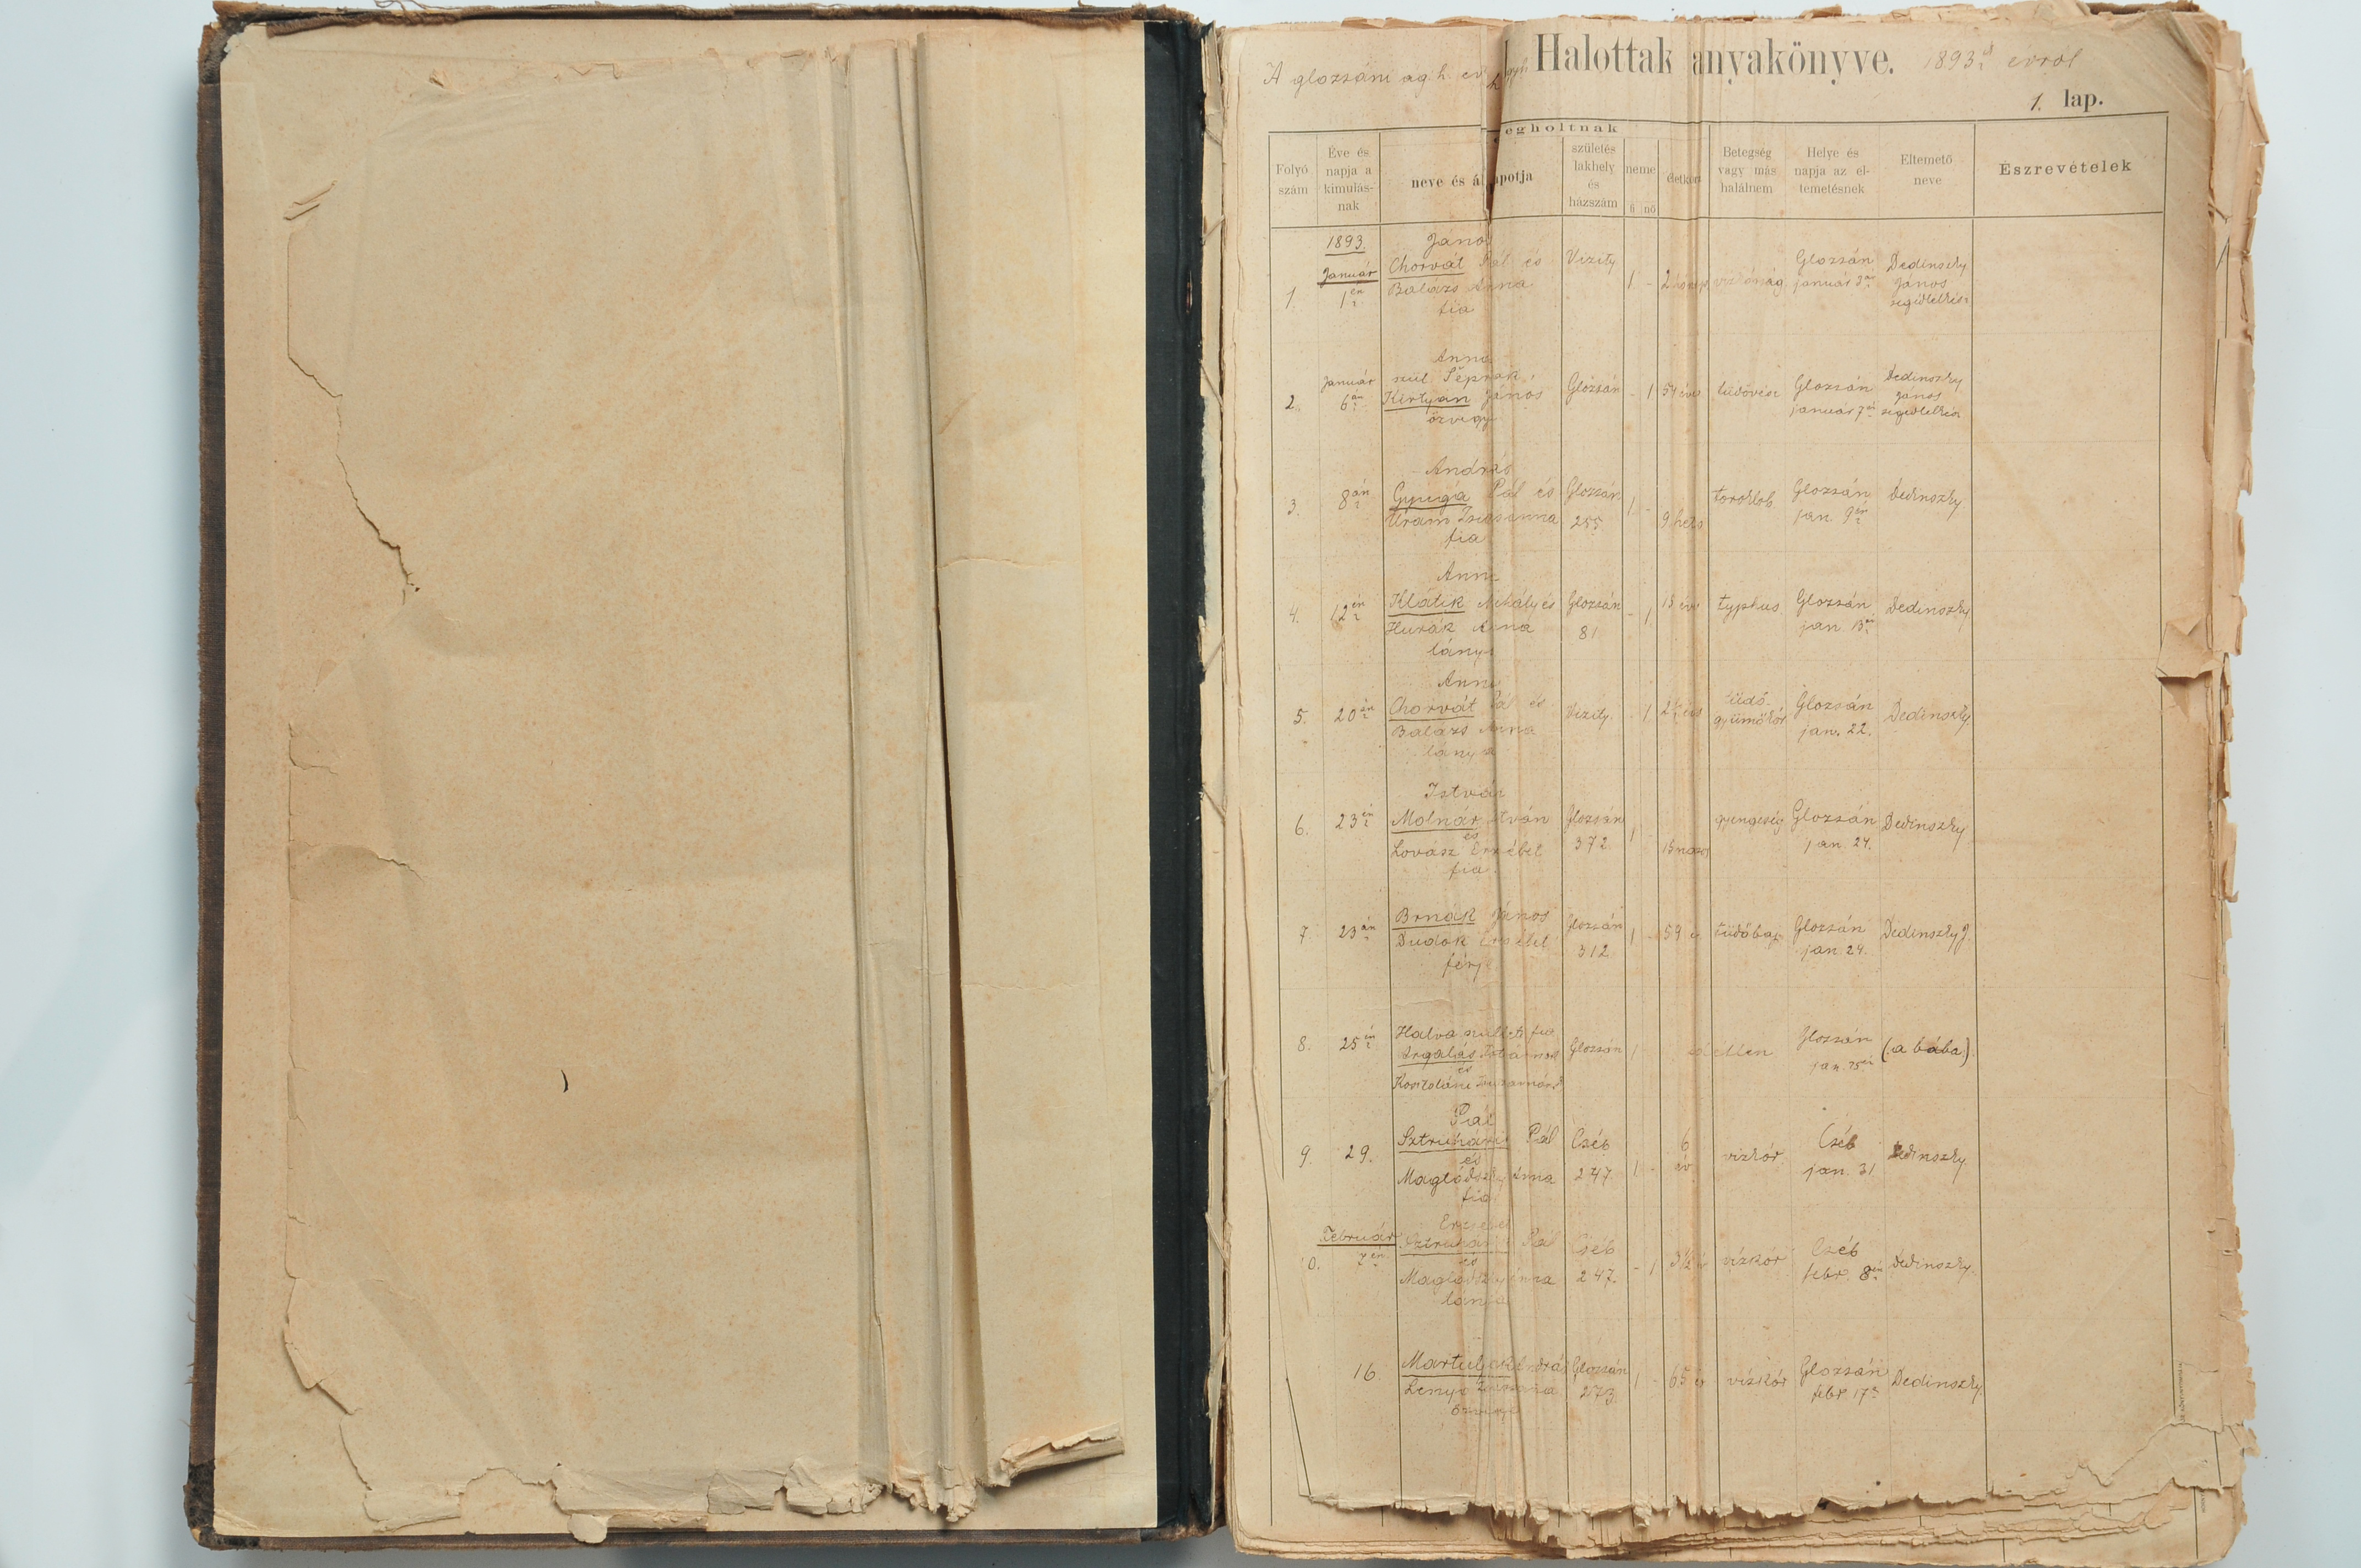 A glozsáni ág. h. ev. Halottak anyakönyve. 1893 évről
1. lap.
egholtnak
Folyó szám
Éve és napja a kimulás-nak
neve és állapotja
születés lakhely és házszám
neme
fi nő
életkora
Betegség vagy más halálnem
Helye és napja az el-temetésnek
Eltemető neve
Észrevételek
1893.
Január
1. 1én
János
Chorvát Pál és
Balázs Anna
fia
Vizity 1 - 2
Glozsán
január
Dedinszky
János
segédlelkész
Január
2. 6án
Anna
szül
Kirtyán János
özvegy
Glozsán - 1 54 éves tüdővész
Glozsán
január 7én
Dedinszky
János
segédlelkész
3. 8án
András
Gyuga Pál és
Uram Zsuzsanna
fia
Glozsán
255
1 - 9 hetes toroklob
Glozsán
jan. 9én
Dedinszky
4. 12én
Anna
Klátik Mihály és
Hurák Anna
lánya
Glozsán
81
- 1 18 éves typhus
Glozsán
jan 13án
Dedinszky
5. 20án
Anna
Chorvát Pál és
Balázs Anna
lánya
Vizity. - 1 2 éves
tüdő-
gümőkór
Glozsán
jan. 22.
Dedinszky.
6. 23án
István
Molnár István
és
Lovász Erzsébet
fia
Glozsán
372
1 - 15 napos gyengeség
Glozsán
jan. 24.
Dedinszky
7. 23án
Brnák János
Dudok Erzsébet
férje
Glozsán
312
1 - 59 é tüdőbaj
Glozsán
jan. 24.
Dedinszky J.
8. 25én
Halva született fia
Argalás Istvánnak
és
Zsuzsannának
Glozsán 1
Glozsán
jan. 25én
(a bába.)
9. 29.
Pál
Sztruhárik Pál
és
Maglódszky Anna
fia
Cséb
247
1 - 6
év
vízkór
Cséb
jan. 31
Dedinszky
Február
10. 7én
Erzsébet
Sztruhárik Pál
és
Maglódszky Anna
lánya
Cséb
247.
- 1 3 1/2 é vízkór
Cséb
febr. 8án
Dedinszky.
16
András
Zsuzsanna
özvegye
Glozsán
273.
1 - 65 é vízkór
Glozsán
febr 17n
Dedinszky.